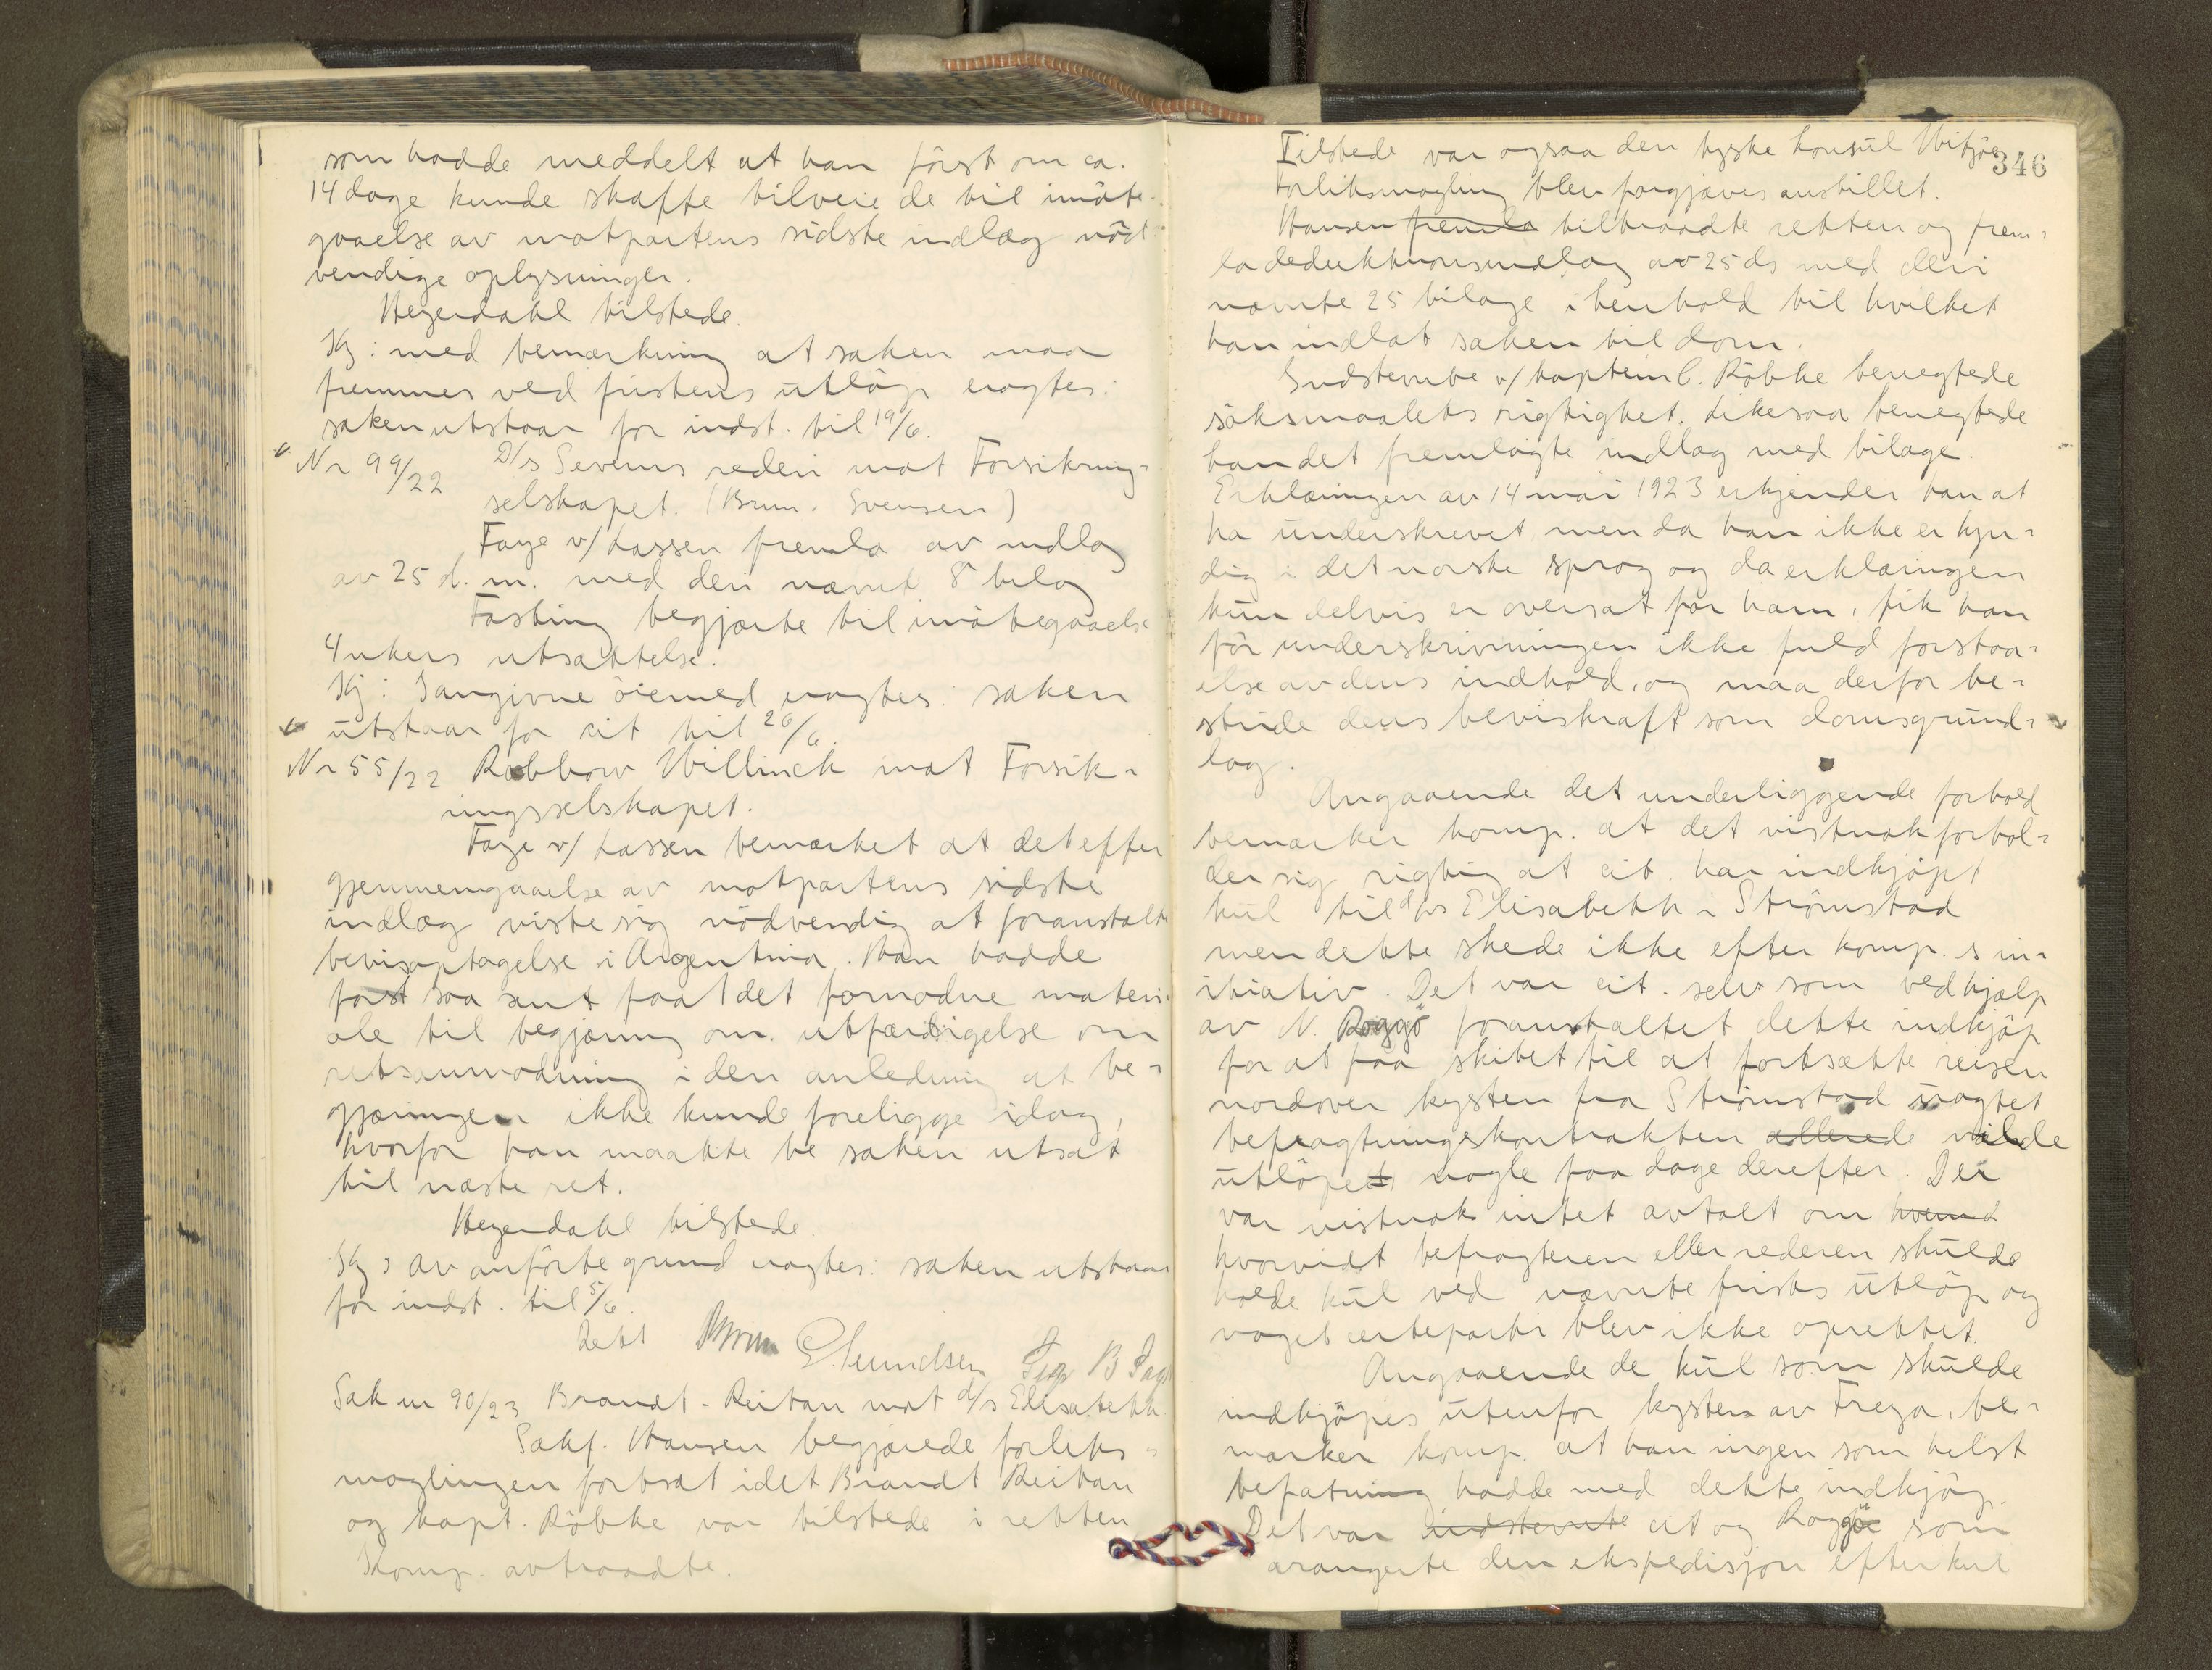 som hadde meddelt at han först om ca.
14 dage kunde skaffe tilveie de til imöte-
gaaelse av motpartens sidste indlæg nöd
vendige oplysninger.
Hegerdahl tilstede.
Kj: med bemerkning at saken maa
fremmes ved fristens utlöp vagtes:
saken utstaar for indst. til 19/6.
Nr 99/22 D/s Severins rederi mot Forsikring-
selskapet. (Brun. Svensen)
Faye v/ Lassen fremla av indlæg
av 25 d. m. med deri nævnt 8 bilag
Fasting begjærte til imötegaaelse
4 ukers utsættelse.
Kj: I angivne öiemed vagtes: saken
utstaar for cit til 26/6.
Nr 55/22 Robbow Willinck mot Forsik-
ringsselskapet.
Faye v/ Lassen bemærket at det efter
gjennemgaaelse av motpartens sidste
indlæg viste sig nödvendig at foranstalte
bevisoptagelse i Argentina. Man hadde
först saa sent faat det fornödne materi-
ale til begjæring om utfærdigelse om
retsanmodning i den anledning at be-
gjæringen ikke kunde foreligge idag,
hvorfor han maatte be saken utsat
til næste ret.
Hegerdahl tilstede.
Kj: av anförte grund vagtes: saken utstaar
for indst. til 5/6.
Rett Brun E. Amundsen
Sak nr 90/23 Brandt-Reitan mot d/s Elisabeth.
Sakf. Hansen begjærede forliks-
mæglingen fortsat idet Brandt Reitan
og kapt. Röbke var tilstede i retten
Komp. avtraadte.
346
Tilstede var ogsaa den tyske konsul
Forliksmægling blev forgjæves anstillet.
Hansen fremla tiltraadte retten og frem-
la deduktionsindlæg av 25 ds med deri
nævnte 25 bilage i henhold til hvilket
han indlot saken til dom.
Indstevnte v/ kaptein C. Röbke benegtede
söksmaalets rigtighet. Likesaa benegtede
han det fremlagte indlæg med bilage.
Erklæringen av 14 mai 1923 erkjender han at
ha underskrevet men da han ikke er kyn-
dig i det norske sprog og da erklæringen
kun delvis er oversat for ham, fik han
för underskrivningen ikke fuld forstaa-
else av dens indhold, og maa derfor be-
stride dens beviskraft som domsgrund-
lag.
Angaaende det underliggende forhold
bemærker komp. at det vistnok forhol-
der sig rigtig at cit. har indkjöpt
kul til d/s Elisabeth i Strömstad
men dette skede ikke efter komp.s in-
itiativ. Det var cit. selv som ved hjælp
av N. Roggö foranstaltet dette indkjöp
for at faa skibet til at fortsætte reisen
nordover kysten fra Strömstad uagtet
befragtningskontrakten allerede vilde
utlöpet nogle faa dage derefter. Der
var vistnok intet avtalt om hvem
hvorvidt befragteren eller rederen skulde
holde kul ved nævnte frists utlöp og
noget certeparti blev ikke oprettet.
Angaaende de kul som skulde
indkjöpes utenfor kysten av Fröya, be-
mærker komp. at han ingen som helst
befatning hadde med dette indkjöp.
Det var indstevnte cit og Roggö som
arangerte den ekspedisjon efter kul